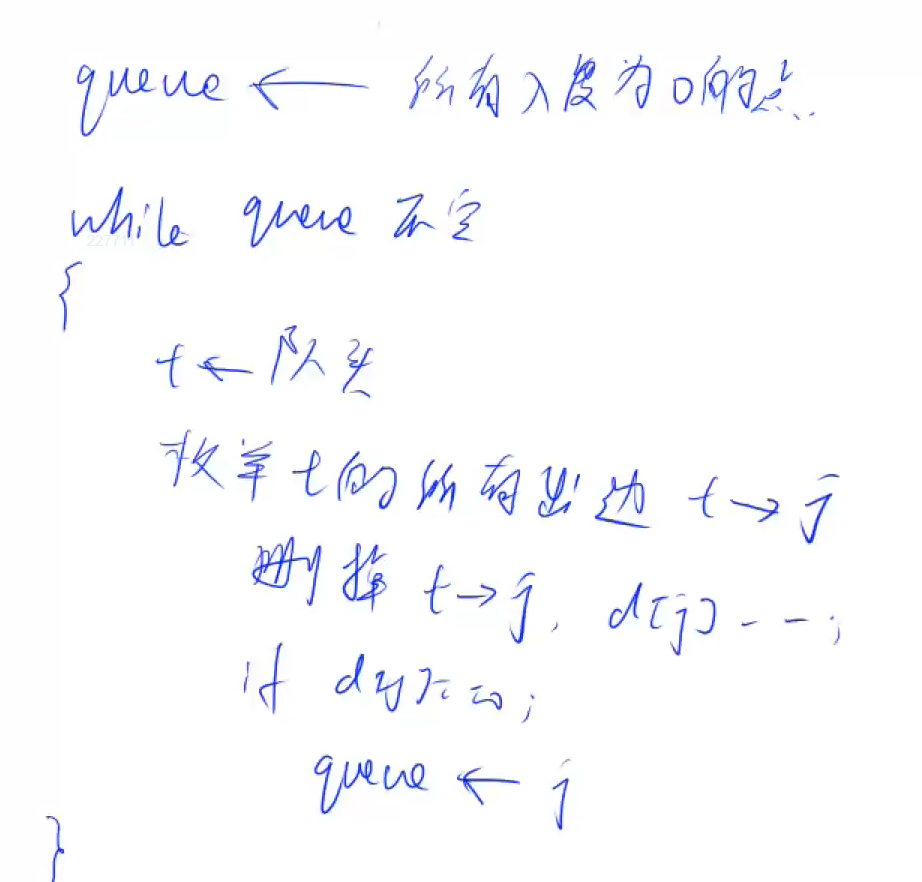 queue ← 所有入度为0的点
while queue 不空
{
t ← 队头
枚举 t 的所有出边 t → j
删掉 t → j, d[j]--;
if d[j] == 0;
queue ← j
}